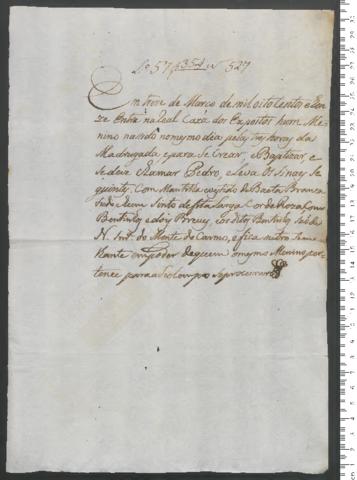 Lº 57 f 354 nº 527
Em treze de Marco de mil oito Centos e
Ze Entra na Real Caza dos Expostos hum Me-
nino nascido no mesmo dia pelas tres horas da
Madrugada e para se Crear, e Baptizar, e
Se deve Xamar Pedro, e Leva os Sinays Se-
guintes. Com Mantilha e vestido de Baeta Branca
de fita Larga Cor de Roza Com
Bentinhos e dois Breves, Cordões, Bentinhos
N. Snrª do Monte do Carmo, e fica outro Seme-
lhante em poder de quem o mesmo Menino per-
tence para a todo o tempo Se procurar